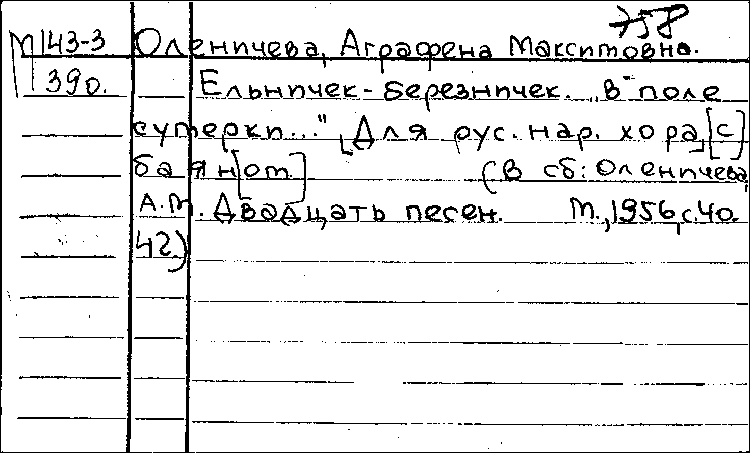 758
М 143-3 Оленичева, Аграфена Максимовна.
390. Ельничек-березничек. „В поле
сутерки..." [Для рус. нар. хора] [с]
баян[ом] (В сб: Оленичева
А.М. Двадцать песен. М., 1956, с. 40.
42)